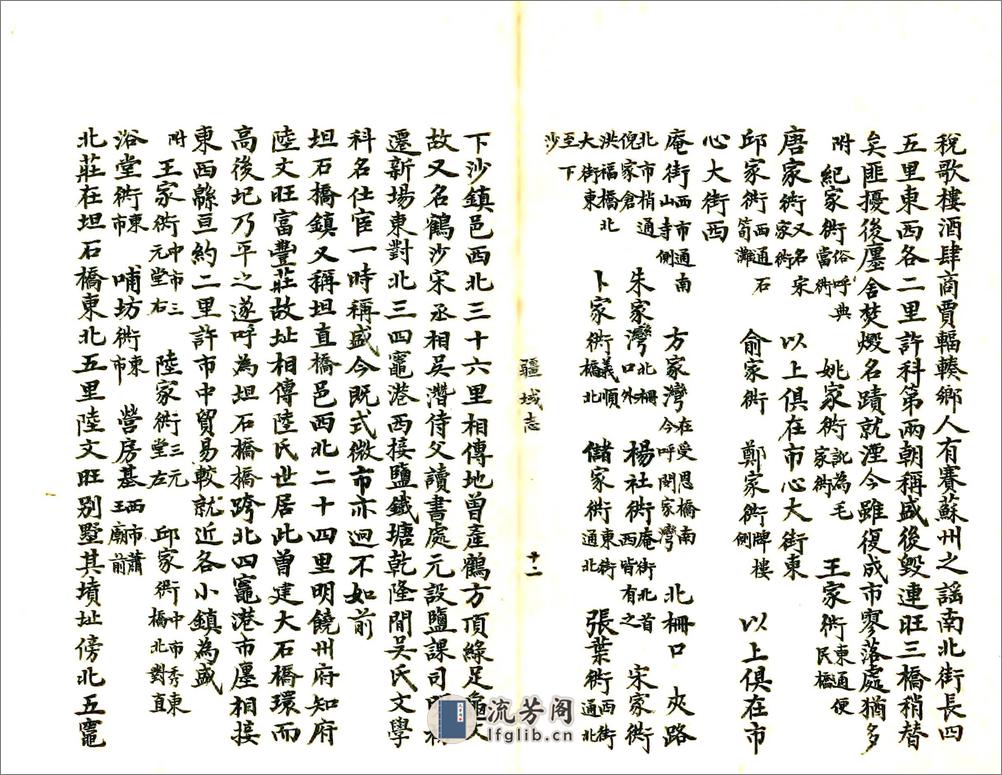 稅歌樓酒肆商賈輻輳鄉人有賽蘇州之謡南北街長四
五里東西各二里許科第兩朝稱盛後毀連旺三橋稍替
矣匪擾後廛舍焚燬名蹟就湮今雖復成市寥落處猶多
附紀家衖俗呼典當衖 姚家衖訛為毛家衖 王家衖東通便民橋
唐家衖又名宋家衖 以上俱在市心大街東
邱家衖西通石筍灘 俞家衖 鄭家衖牌樓側 以上俱在市
心大街西
庵街西市通南山寺側 方家灣在受恩橋南今呼閔家灣 北柵口 夾路
北市梢通倪家倉 朱家灣北柵口外 楊社衖庵街北首西皆有之 宋家衖
洪福橋北大街東 卜家衖義順橋北 儲家衖東街通北 張葉衖西街通北
至下沙
疆域志
十二
下沙鎮邑西北三十六里相傳地曾產鶴方頂綠足龜文
故又名鶴沙宋丞相吳潛侍父讀書處元設鹽課司
遷新場東對北三四竈港西接鹽鐵塘乾隆間吳氏文學
科名仕宦一時稱盛今既式微市亦迥不如前
坦石橋鎮又稱坦直橋邑西北二十四里明饒州府知府
陸文旺富豐莊故址相傳陸氏世居此曾建大石橋環而
高後圮乃平之遂呼為坦石橋橋跨北四竈港市廛相接
東西緜亘約二里許市中貿易較就近各小鎮為盛
附王家衖中市三元堂右 陸家衖三元堂左 邱家衖中市秀東橋北對直
浴堂衖東市 哺坊衖東市 營房基西市蕭王廟前
北莊在坦石橋東北五里陸文旺別墅其墳址傍北五竈
流芳阁
lfglib.cn